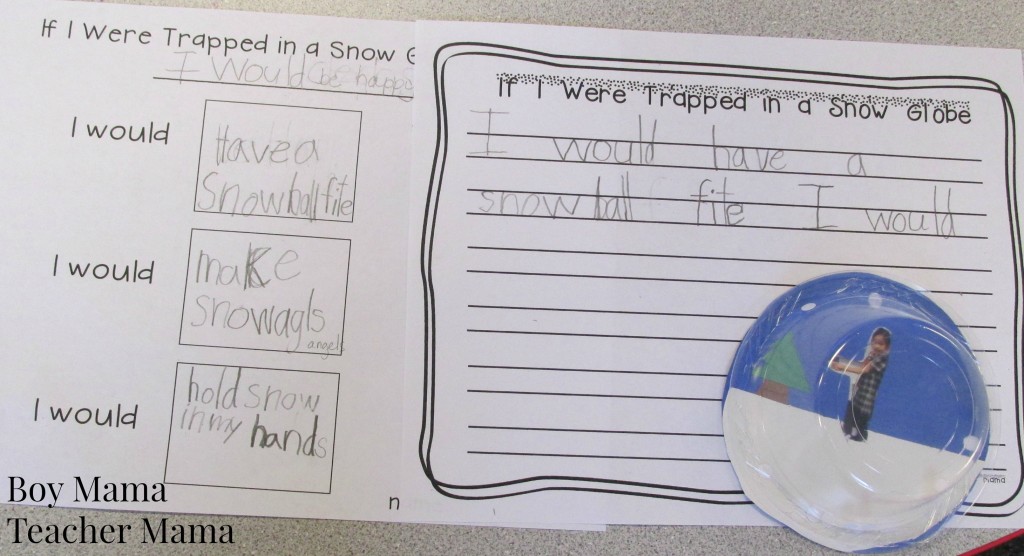 If I Were Trapped in a Snow G
I would be happy
I would
Have a
Snowball fite
I would
make
snowagls
angels
I would
hold snow
in my hands
n
If I Were Trapped in a Snow Globe
I would have a
snowball fite I would
mama
Boy Mama
Teacher Mama